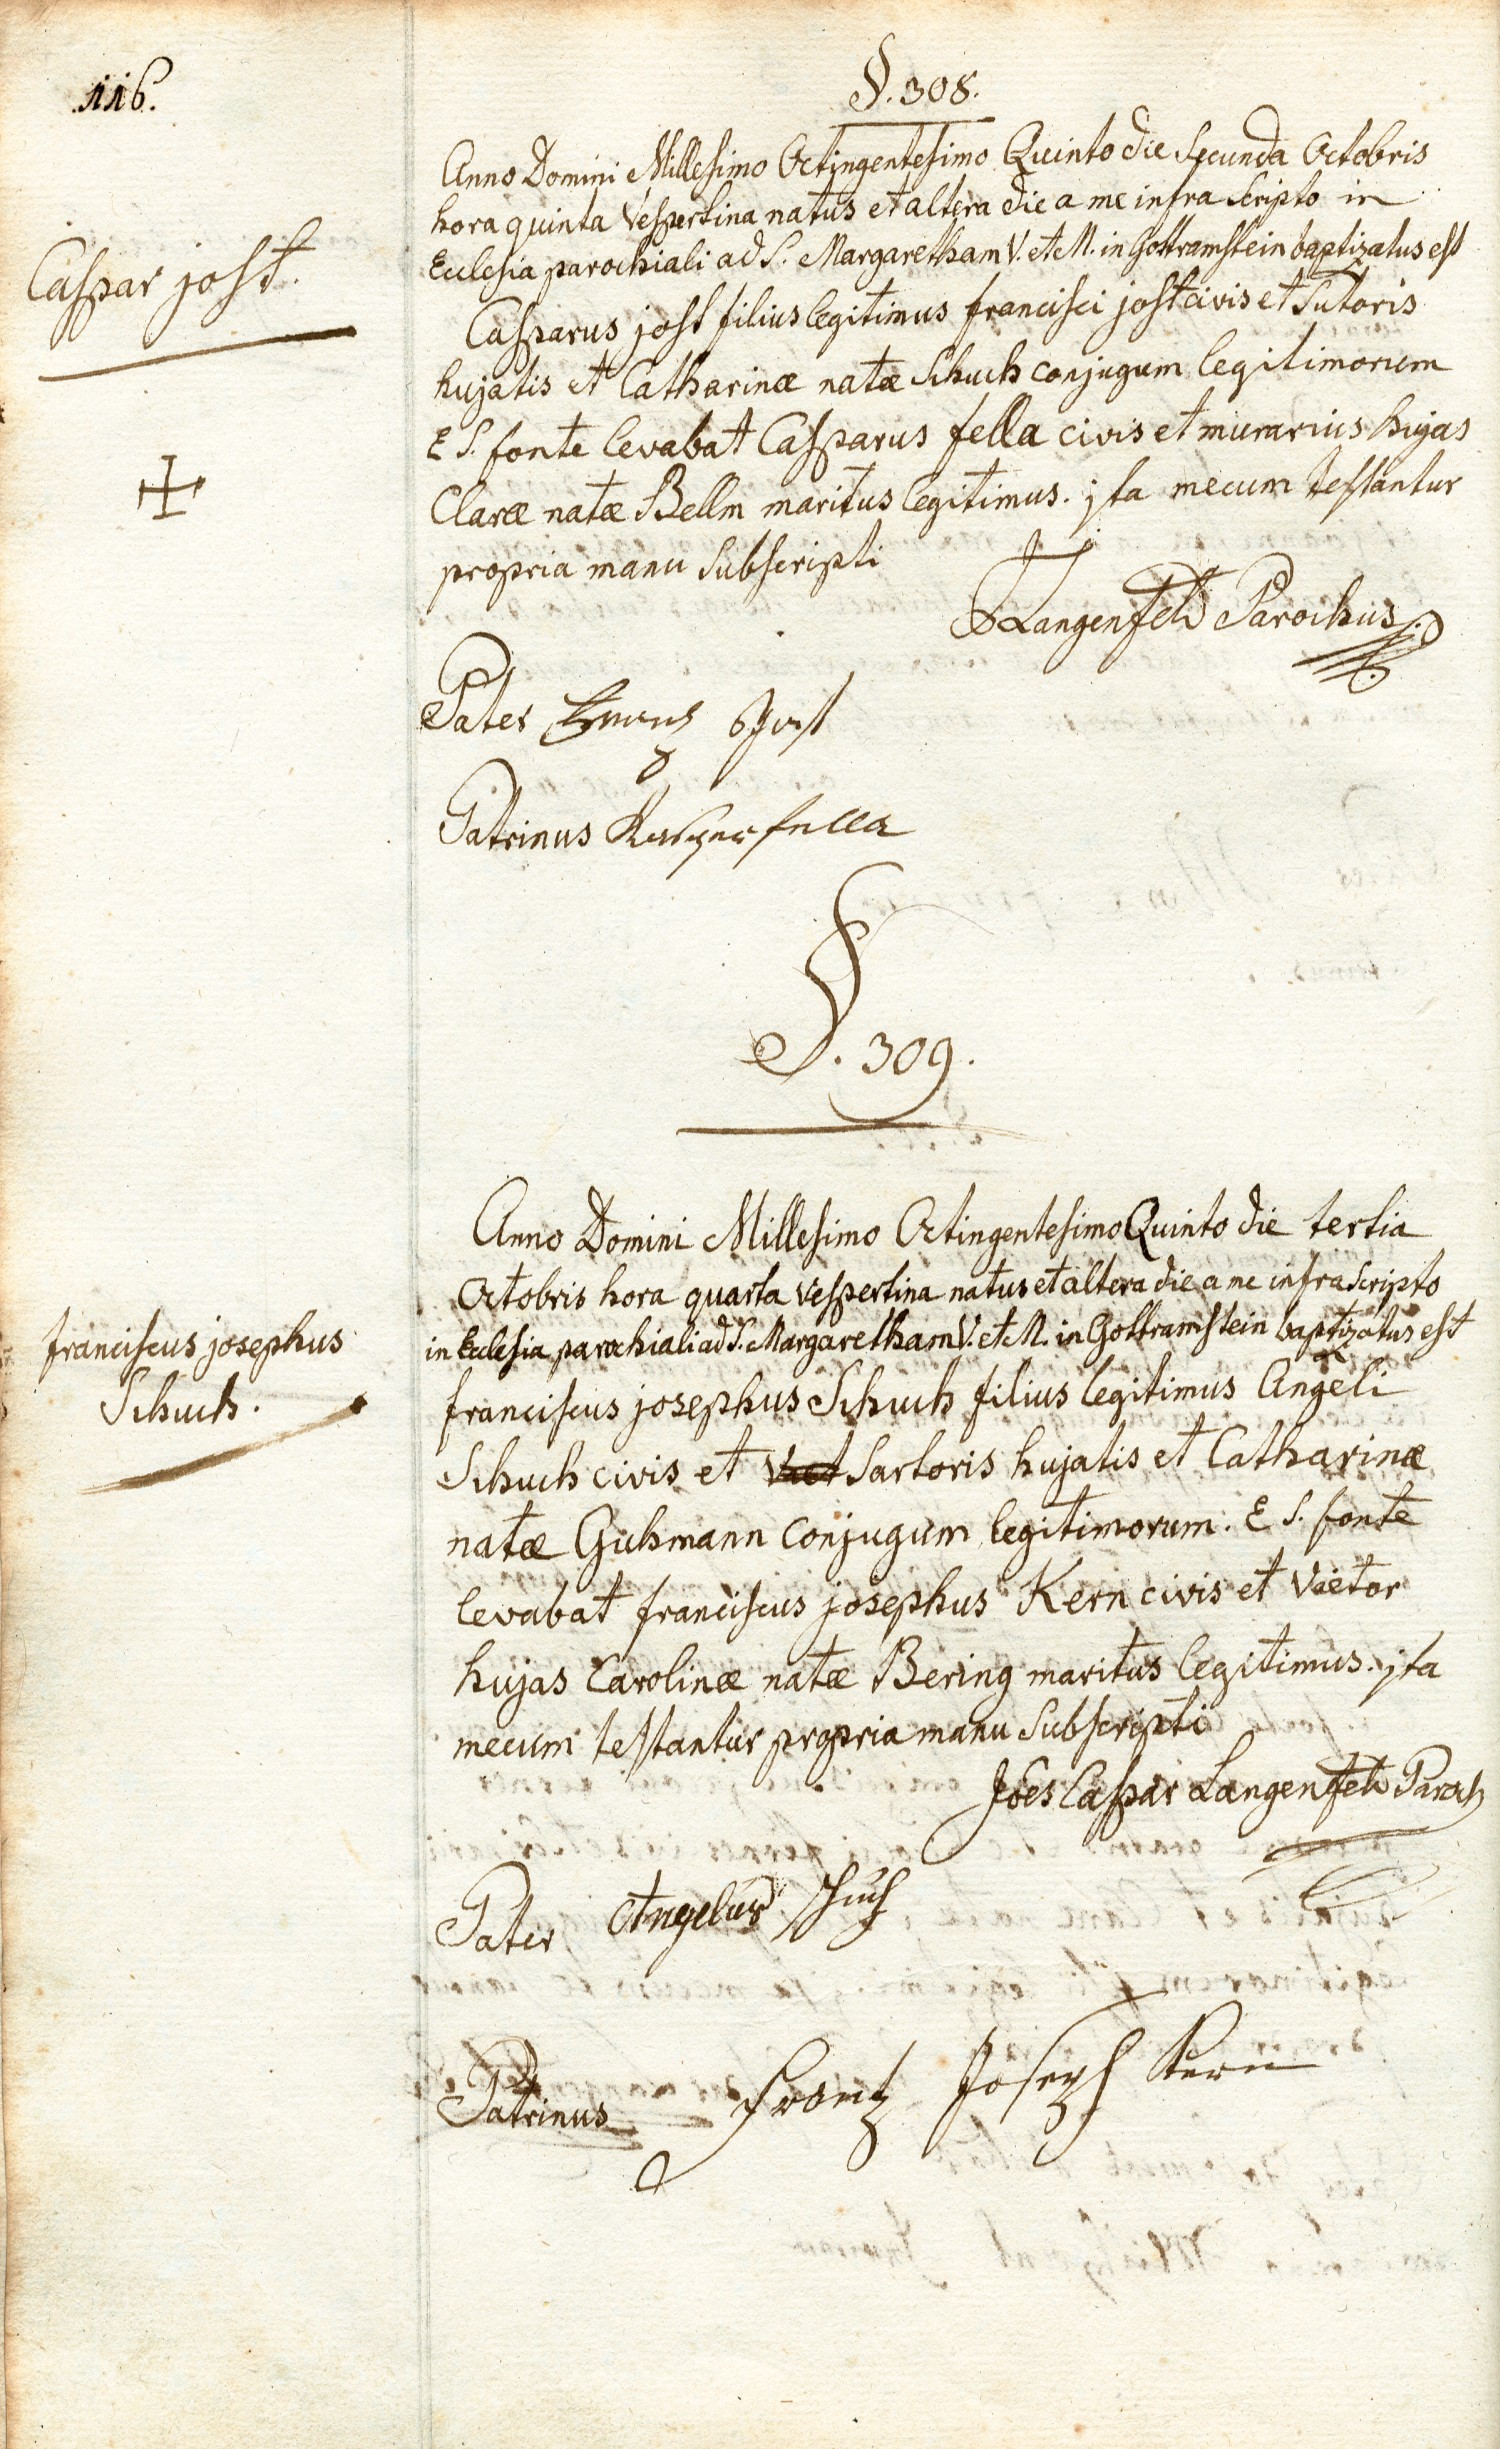 116.
§. 308.
Anno Domini Millesimo Octingentesimo Quinto die Secunda Octobris
hora quinta Vespertina natus et altera die a me infra Scripto in
Ecclesia parochiali ad S. Margaretham V. et M. in Gottramstein baptizatus est
Caspar jost.
Casparus jost filius legitimus francisci jost civis et Sutoris
hujatis et Catharinæ natæ Schuch conjugum legitimorum
E S. fonte levabat Casparus fella civis et murarius hujas
Claræ natæ Bellm maritus legitimus. jta mecum testantur
propria manu Subscripti
Langenfeld Parochus
Pater Jost
Patrinus Kasper fella
§. 309.
Anno Domini Millesimo Octingentesimo Quinto die tertia
Octobris hora quarta vespertina natus et altera die a me infra Scripto
in Ecclesia parochiali ad S. Margaretham V. et M. in Gottramstein baptizatus est
franciscus josephus
Schuch.
franciscus josephus Schuch filius legitimus Angeli
Schuch civis et Sartoris hujatis et Catharinæ
natæ Guhmann conjugum legitimorum. E S. fonte
levabat franciscus josephus Kern civis et Vietor
hujas Carolinæ natæ Bering maritus legitimus. jta
mecum testantur propria manu Subscripti
Joes Caspar Langenfeld Paroch
Pater Angelus Schuch
Patrinus Frantz Joseph Kern